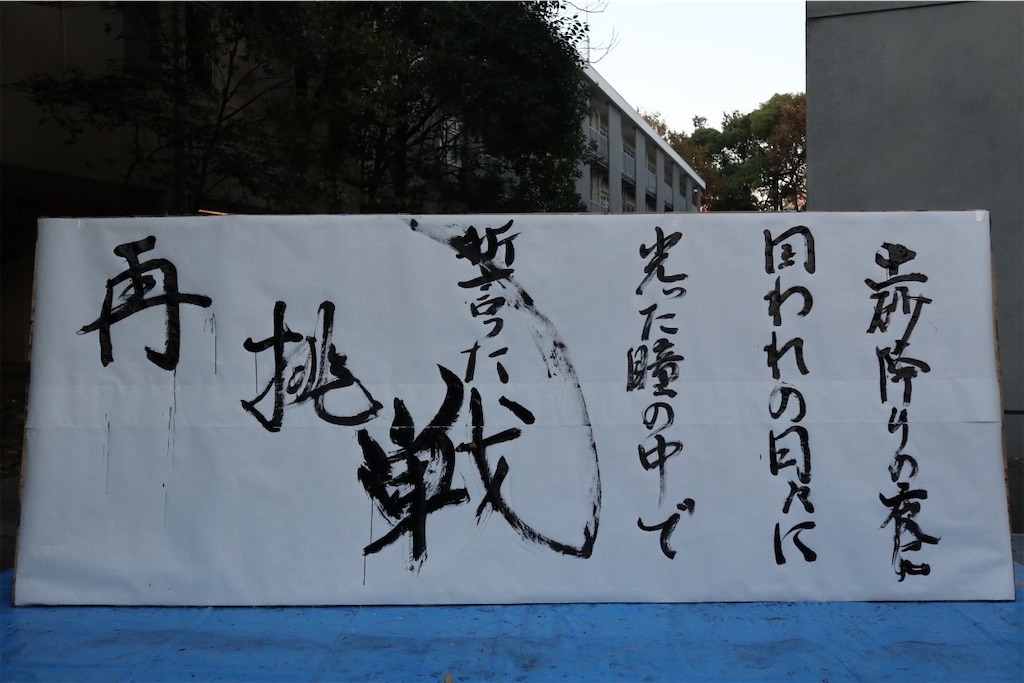 土砂降りの夜に
囚われの日々に
光った瞳の中で
誓った
再挑戦